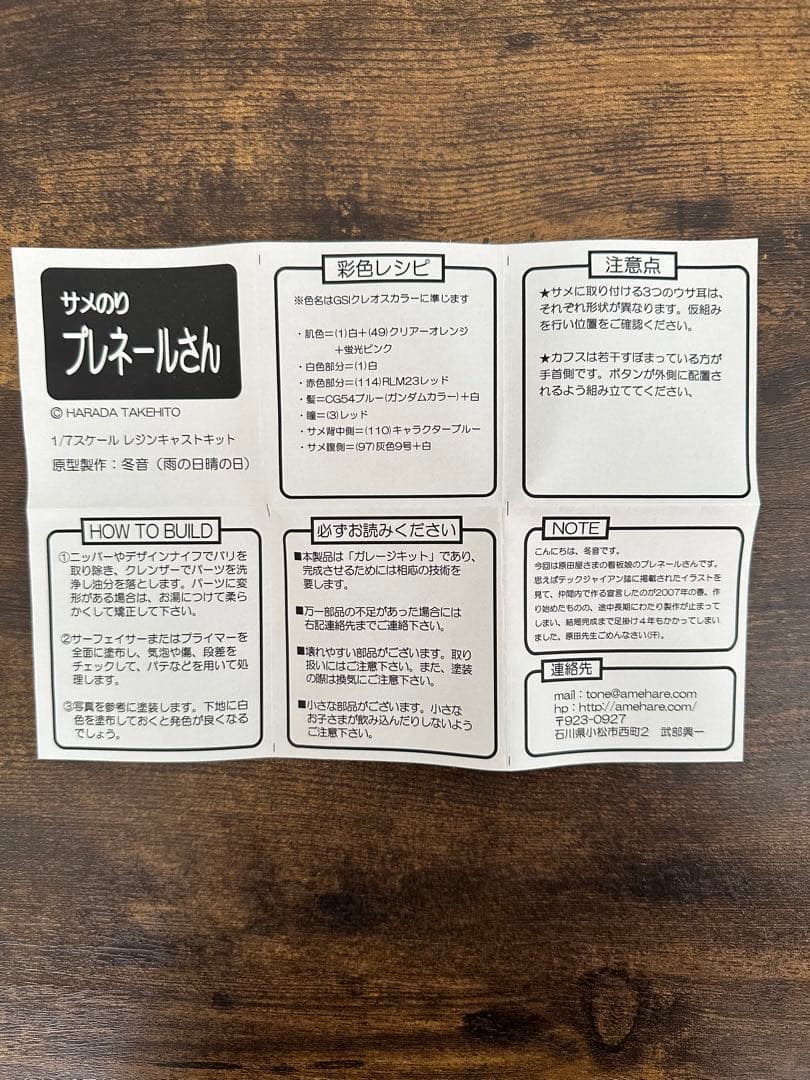 サメのり
プレネールさん
© HARADA TAKEHITO
1/7スケール レジンキャストキット
原型製作：冬音（雨の日晴の日）
彩色レシピ
※色名はGSIクレオスカラーに準じます
・肌色＝(1)白＋(49)クリアーオレンジ
＋蛍光ピンク
・白色部分＝(1)白
・赤色部分＝(114)RLM23レッド
・髪＝CG54ブルー(ガンダムカラー)＋白
・瞳＝(3)レッド
・サメ背中側＝(110)キャラクターブルー
・サメ腹側＝(97)灰色9号＋白
注意点
★サメに取り付ける3つのウサ耳は、
それぞれ形状が異なります。仮組み
を行い位置をご確認ください。
★カフスは若干すぼまっている方が
手首側です。ボタンが外側に配置さ
れるよう組み立ててください、
HOW TO BUILD
①ニッパーやデザインナイフでバリを
取り除き、クレンザーでパーツを洗
浄し油分を落とします。パーツに変
形がある場合は、お湯につけて柔ら
かくして矯正して下さい。
②サーフェイサーまたはプライマーを
全面に塗布し、気泡や傷、段差を
チェックして、パテなどを用いて処
理します。
③写真を参考に塗装します。下地に白
色を塗布しておくと発色が良くなる
でしょう。
必ずお読みください
■本製品は「ガレージキット」であり、
完成させるためには相応の技術を
要します。
■万一部品の不足があった場合には
右記連絡先までご連絡下さい。
■壊れやすい部品がございます。取り
扱いにはご注意下さい。また、塗装
の際は換気にご注意下さい。
■小さな部品がございます。小さな
お子さまが飲み込んだりしないよう
ご注意下さい。
NOTE
こんにちは、冬音です。
今回は原田屋さまの看板娘のプレネールさんです。
思えばテックジャイアン誌に掲載されたイラストを
見て、仲間内で作る宣言したのが2007年の春、作
り始めたものの、途中長期にわたり製作が止まって
しまい、結局完成まで足掛け４年もかかってしまい
ました。原田先生ごめんなさい(汗)。
連絡先
mail：tone@amehare.com
hp：http://amehare.com/
〒923-0927
石川県小松市西町2　武部興一